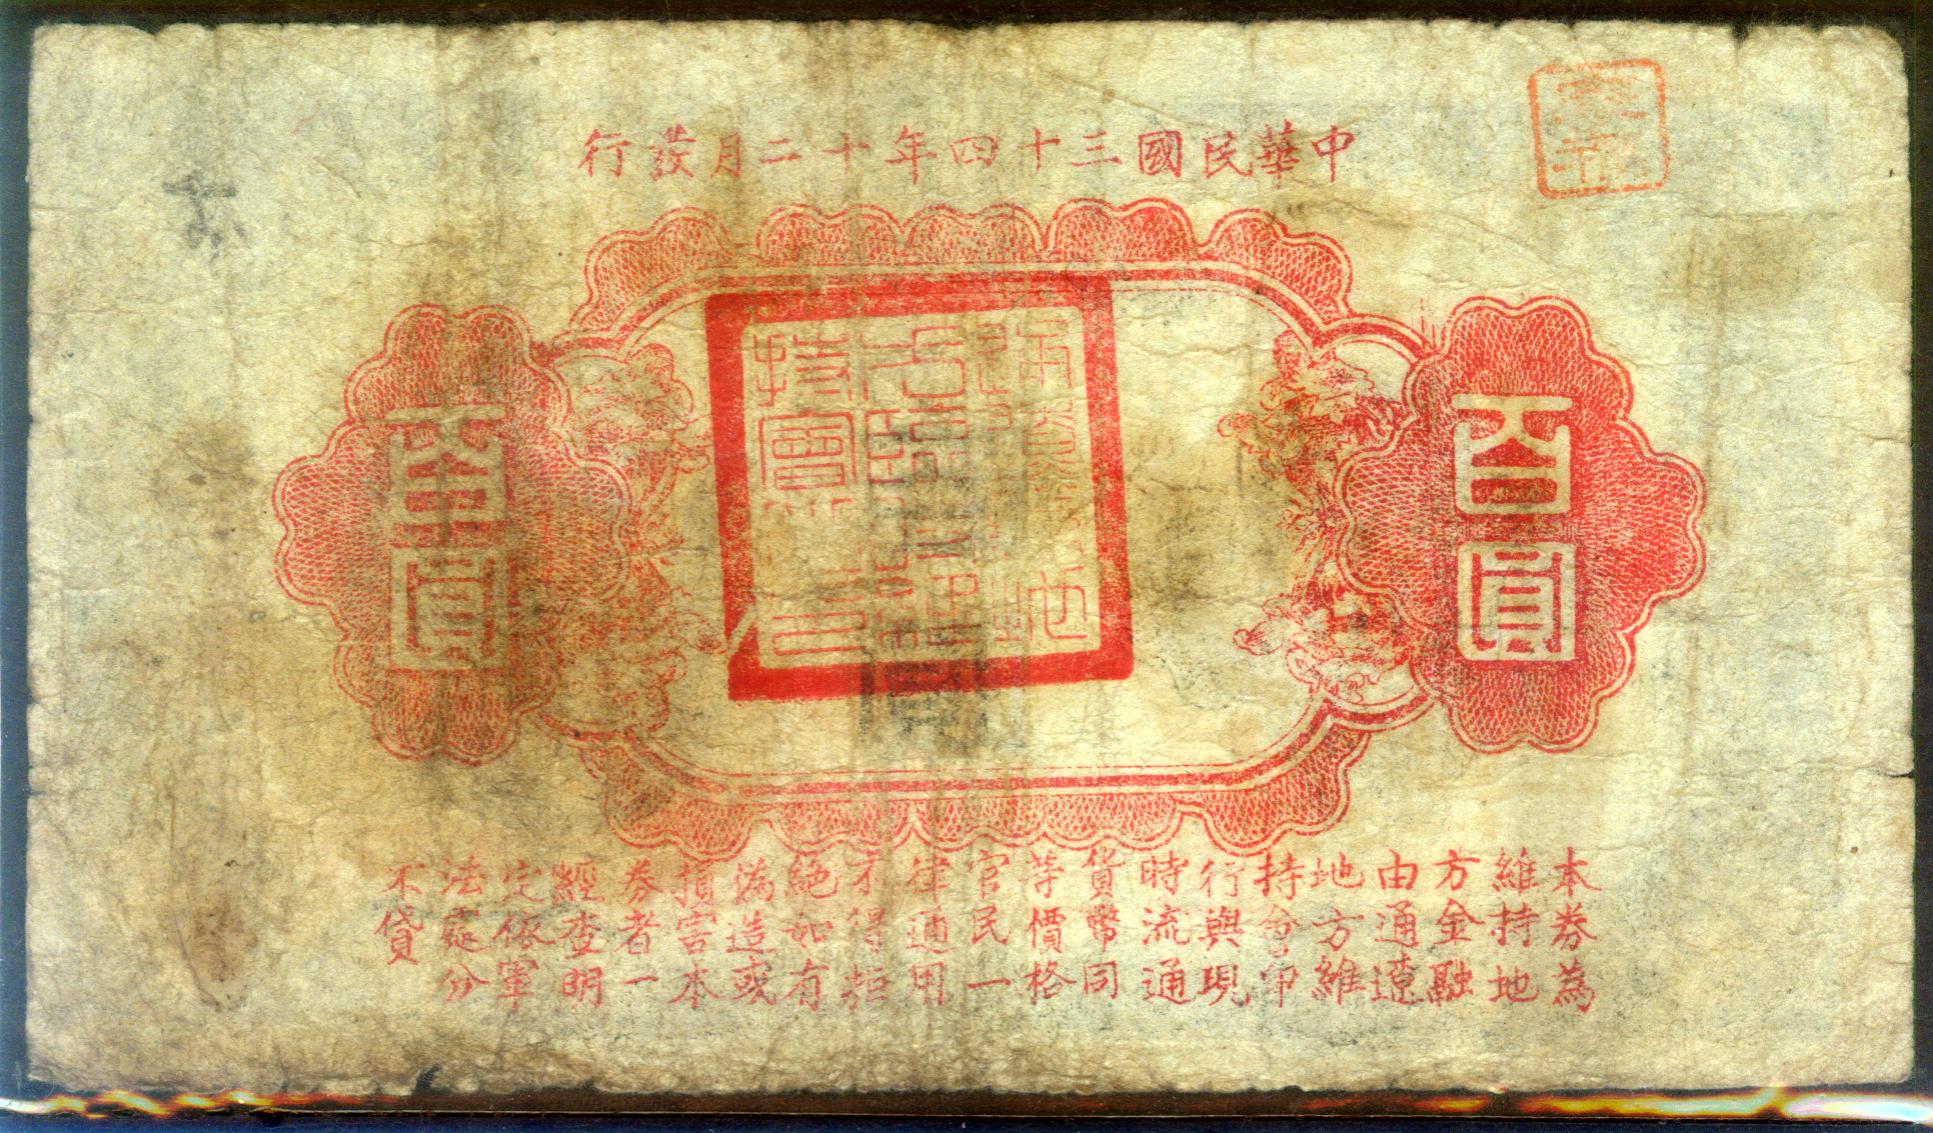 中華民國三十四年十二月發行
百圓
百圓
本券為
維持地
方金融
由通遼
地方維
持會印
行與現
時流通
貨幣同
等價格
官民一
律通用
不得拒
絕如有
偽造或
損害本
券者一
經查明
定依軍
法處分
不貸